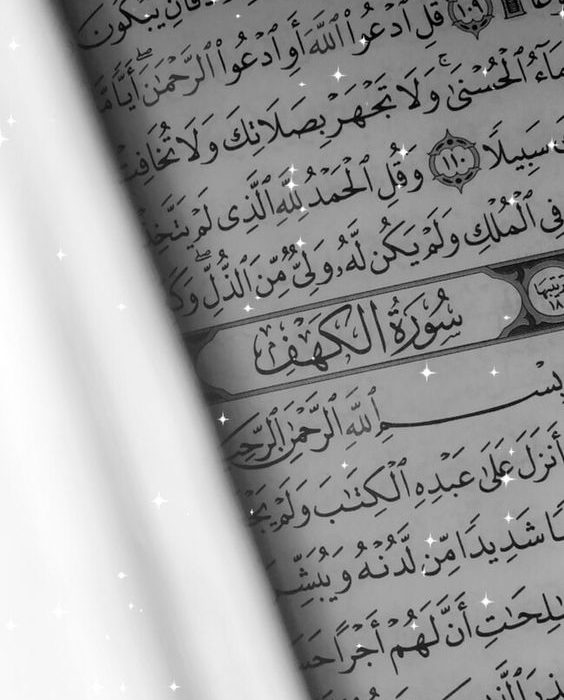 ن يبكون ١٠٩
قل ادعوا ٱلله أو ٱدعوا ٱلرحمن أيا ما
ٱلحسنى ولا تجهر بصلاتك ولا تخافت
سبيلا ١١٠ وقل ٱلحمد لله ٱلذى لم يتخذ
فى ٱلملك ولم يكن له ولى من ٱلذل وك
سورة الكهف
بسم ٱلله ٱلرحمن ٱلرحيم
أنزل على عبده ٱلكتب ولم يج
شديدا من لدنه ويبشر
لحت أن لهم أجرا حس